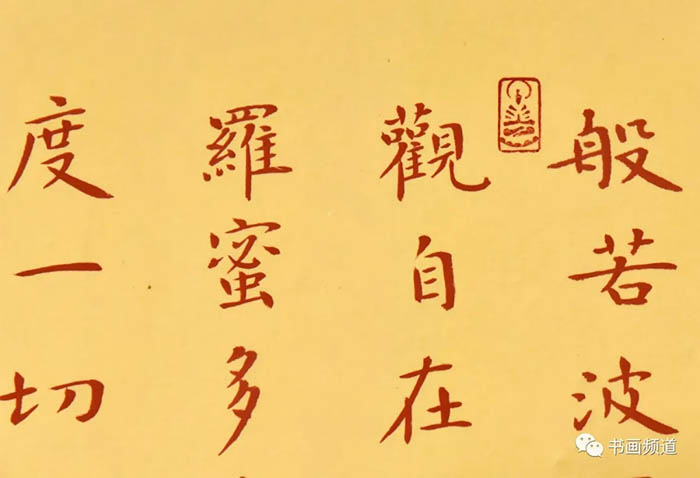 般若波
觀自在
羅蜜多
度一切
书画频道